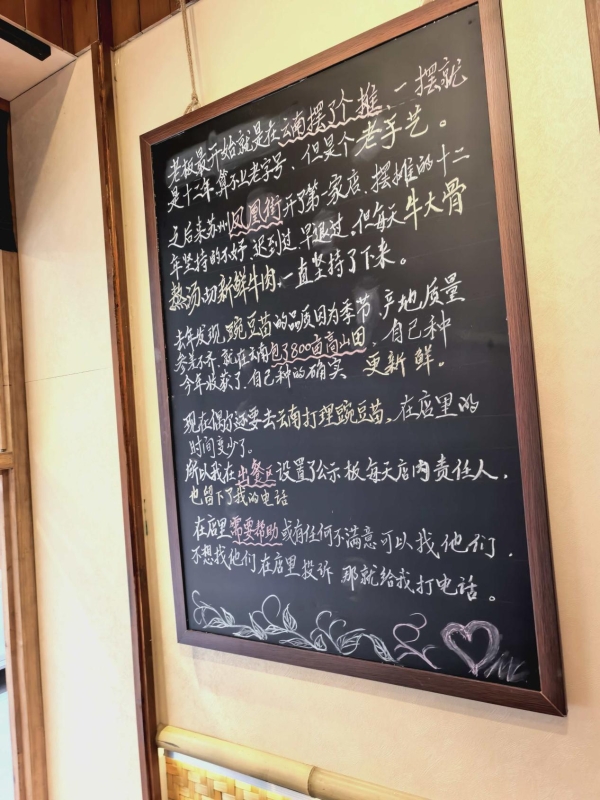 老板最开始就是在云南摆了个摊、一摆就
是十二年.算不上老字号、但是个老手艺。
之后来苏州凤凰街开了第一家店、摆摊的十二
年坚持的不好.迟到过.早退过.但每天牛大骨
熬汤.切新鲜牛肉.一直坚持了下来。
去年发现.豌豆苗的品质因为季节.产地.质量
参差不齐.就在云南包了800亩高山田、自己种
今年收获了.自己种的确实 更新鲜.
现在偶尔还要去云南打理豌豆苗.在店里的
时间变少了。
所以我在出餐口设置了公示板每天店内责任人.
也留下了我的电话
在店里需要帮助或有任何不满意可以找他们.
不想找他们在店里投诉 那就给我打电话。